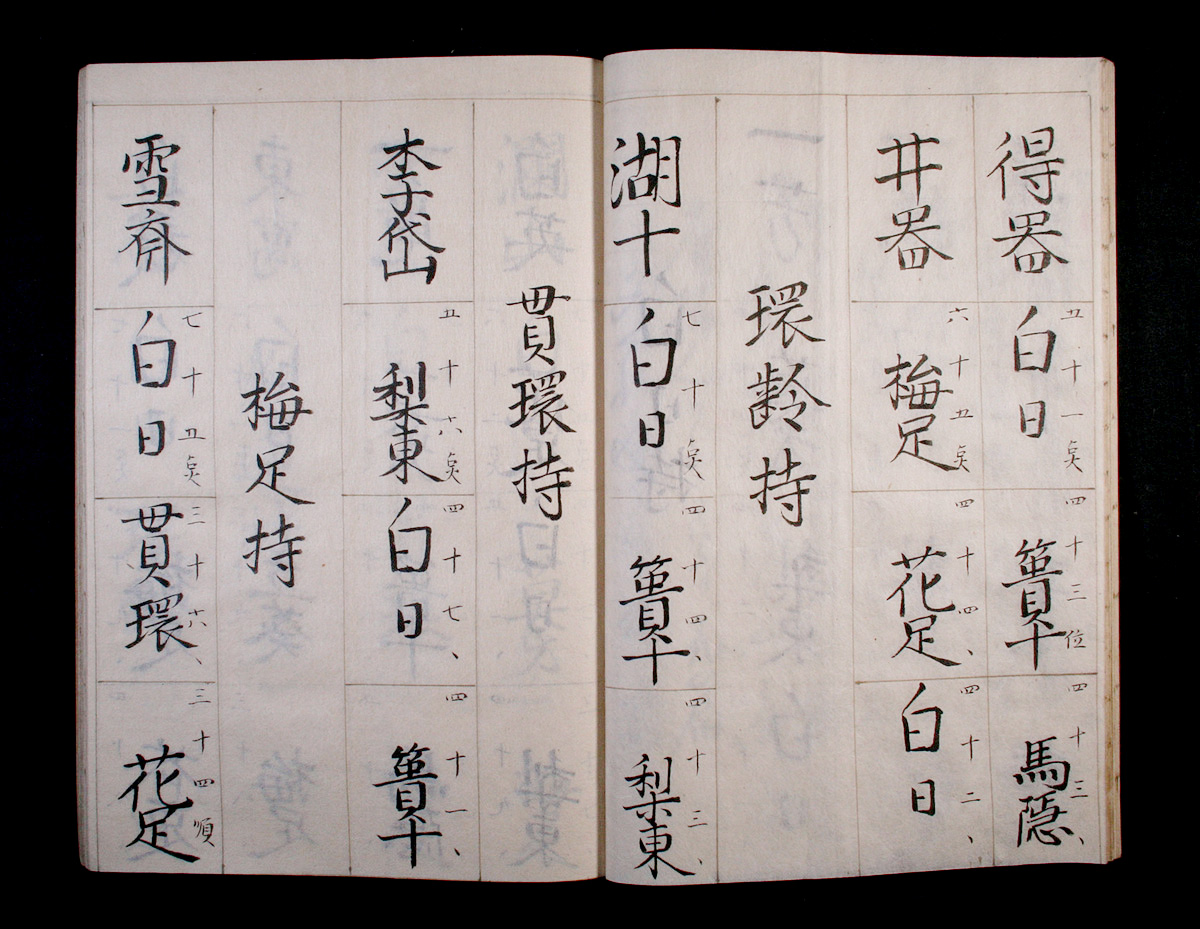 得器
五十一奌
白日
四十三位
簣十
四十三、
馬隠
井器
六十五奌
梅足
四十四、
花足
四十二、
白日
環齢持
湖十
七十奌
白日
四十四、
簣十
四十三、
梨東
貫環持
李岱
五十六奌
梨東
四十七、
白日
四十一、
簣十
梅足持
雪斎
七十五奌
白日
三十六、
貫環
三十四順
花足